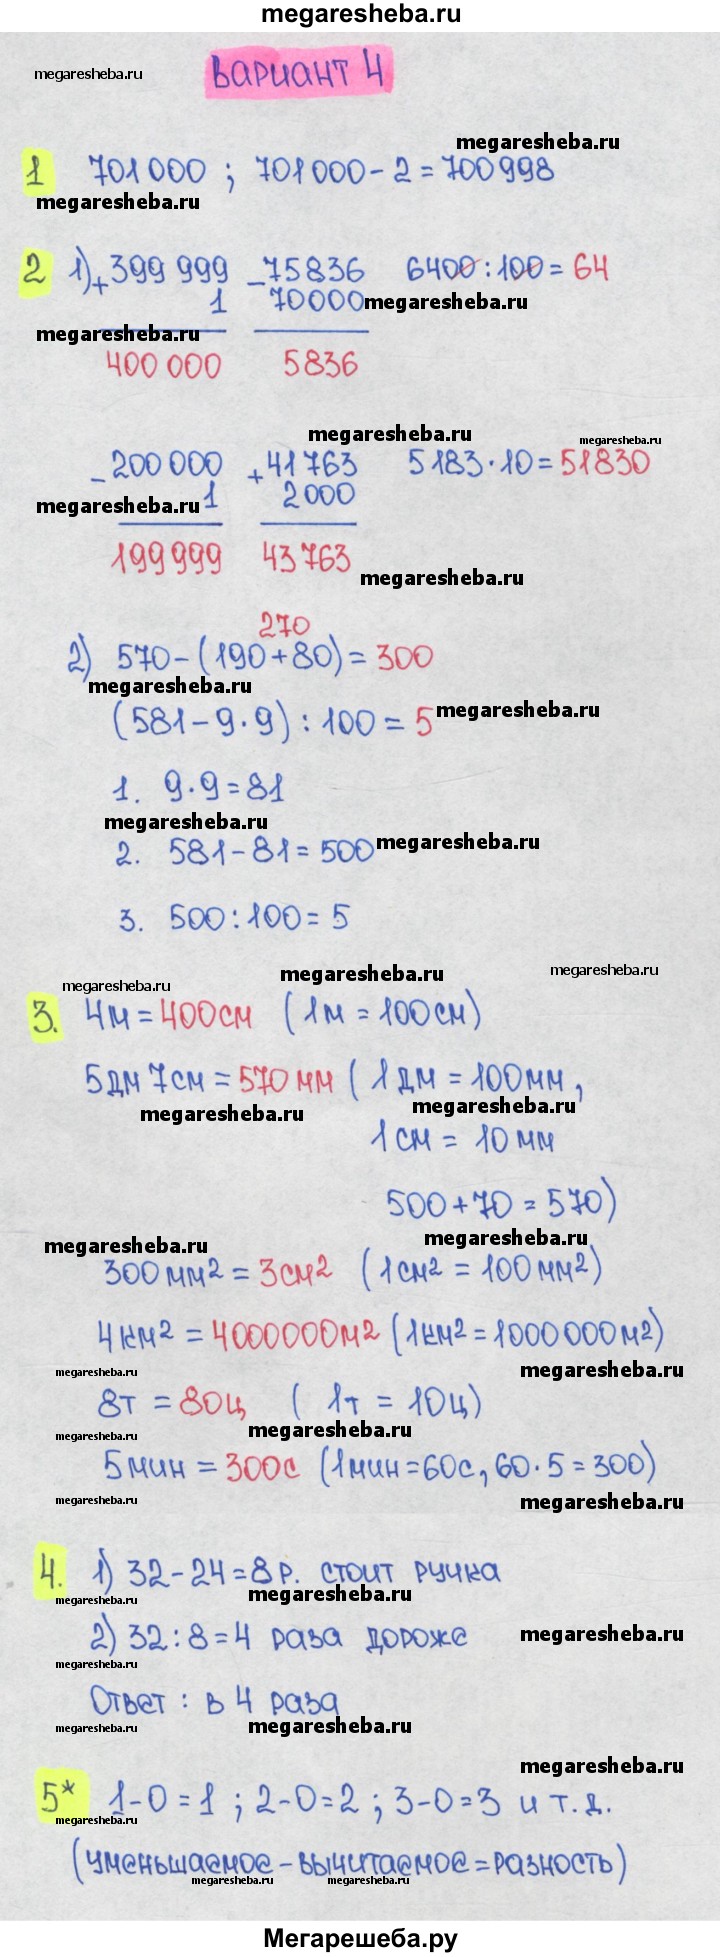 megaresheba.ru
megaresheba.ru
Вариант 4
megaresheba.ru
1 701 000 ; 701 000 - 2 = 700 998
megaresheba.ru
2 1) +399 999 -75836 6400 : 100 = 64
1 70000 megaresheba.ru
megaresheba.ru
400 000 5836
megaresheba.ru megaresheba.ru
-200 000 +41763 5183 · 10 = 51830
megaresheba.ru 1 2000
199 999 43 763
megaresheba.ru
270
2) 570 - (190 + 80) = 300
megaresheba.ru
(581 - 9 · 9) : 100 = 5 megaresheba.ru
1. 9 · 9 = 81
megaresheba.ru
2. 581 - 81 = 500 megaresheba.ru
3. 500 : 100 = 5
megaresheba.ru megaresheba.ru megaresheba.ru
3. 4м = 400см (1м = 100см)
5дм 7см = 570мм (1дм = 100мм,
megaresheba.ru megaresheba.ru
1см = 10мм
500 + 70 = 570)
megaresheba.ru megaresheba.ru
300мм² = 3см² (1см² = 100мм²)
4км² = 4000000м² (1км² = 1000000м²)
megaresheba.ru megaresheba.ru
8т = 80ц (1т = 10ц)
megaresheba.ru megaresheba.ru
5мин = 300с (1мин = 60с, 60 · 5 = 300)
megaresheba.ru megaresheba.ru
4. 1) 32 - 24 = 8 р. стоит ручка
megaresheba.ru megaresheba.ru
2) 32 : 8 = 4 раза дороже megaresheba.ru
megaresheba.ru
Ответ : в 4 раза
megaresheba.ru megaresheba.ru
megaresheba.ru
5* 1 - 0 = 1 ; 2 - 0 = 2 ; 3 - 0 = 3 и т.д.
megaresheba.ru
(уменьшаемое - вычитаемое = разность)
megaresheba.ru megaresheba.ru
Мегарешеба.ру